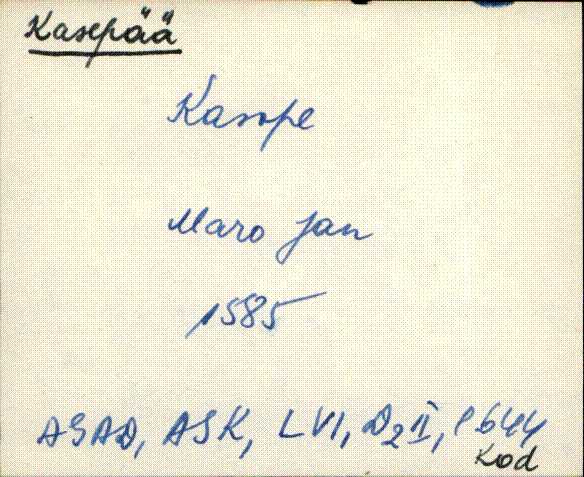 Kasepää
Kasope
Maro Jan
1585
ASAD, ASK, LVI, D2II, l 644
Kod